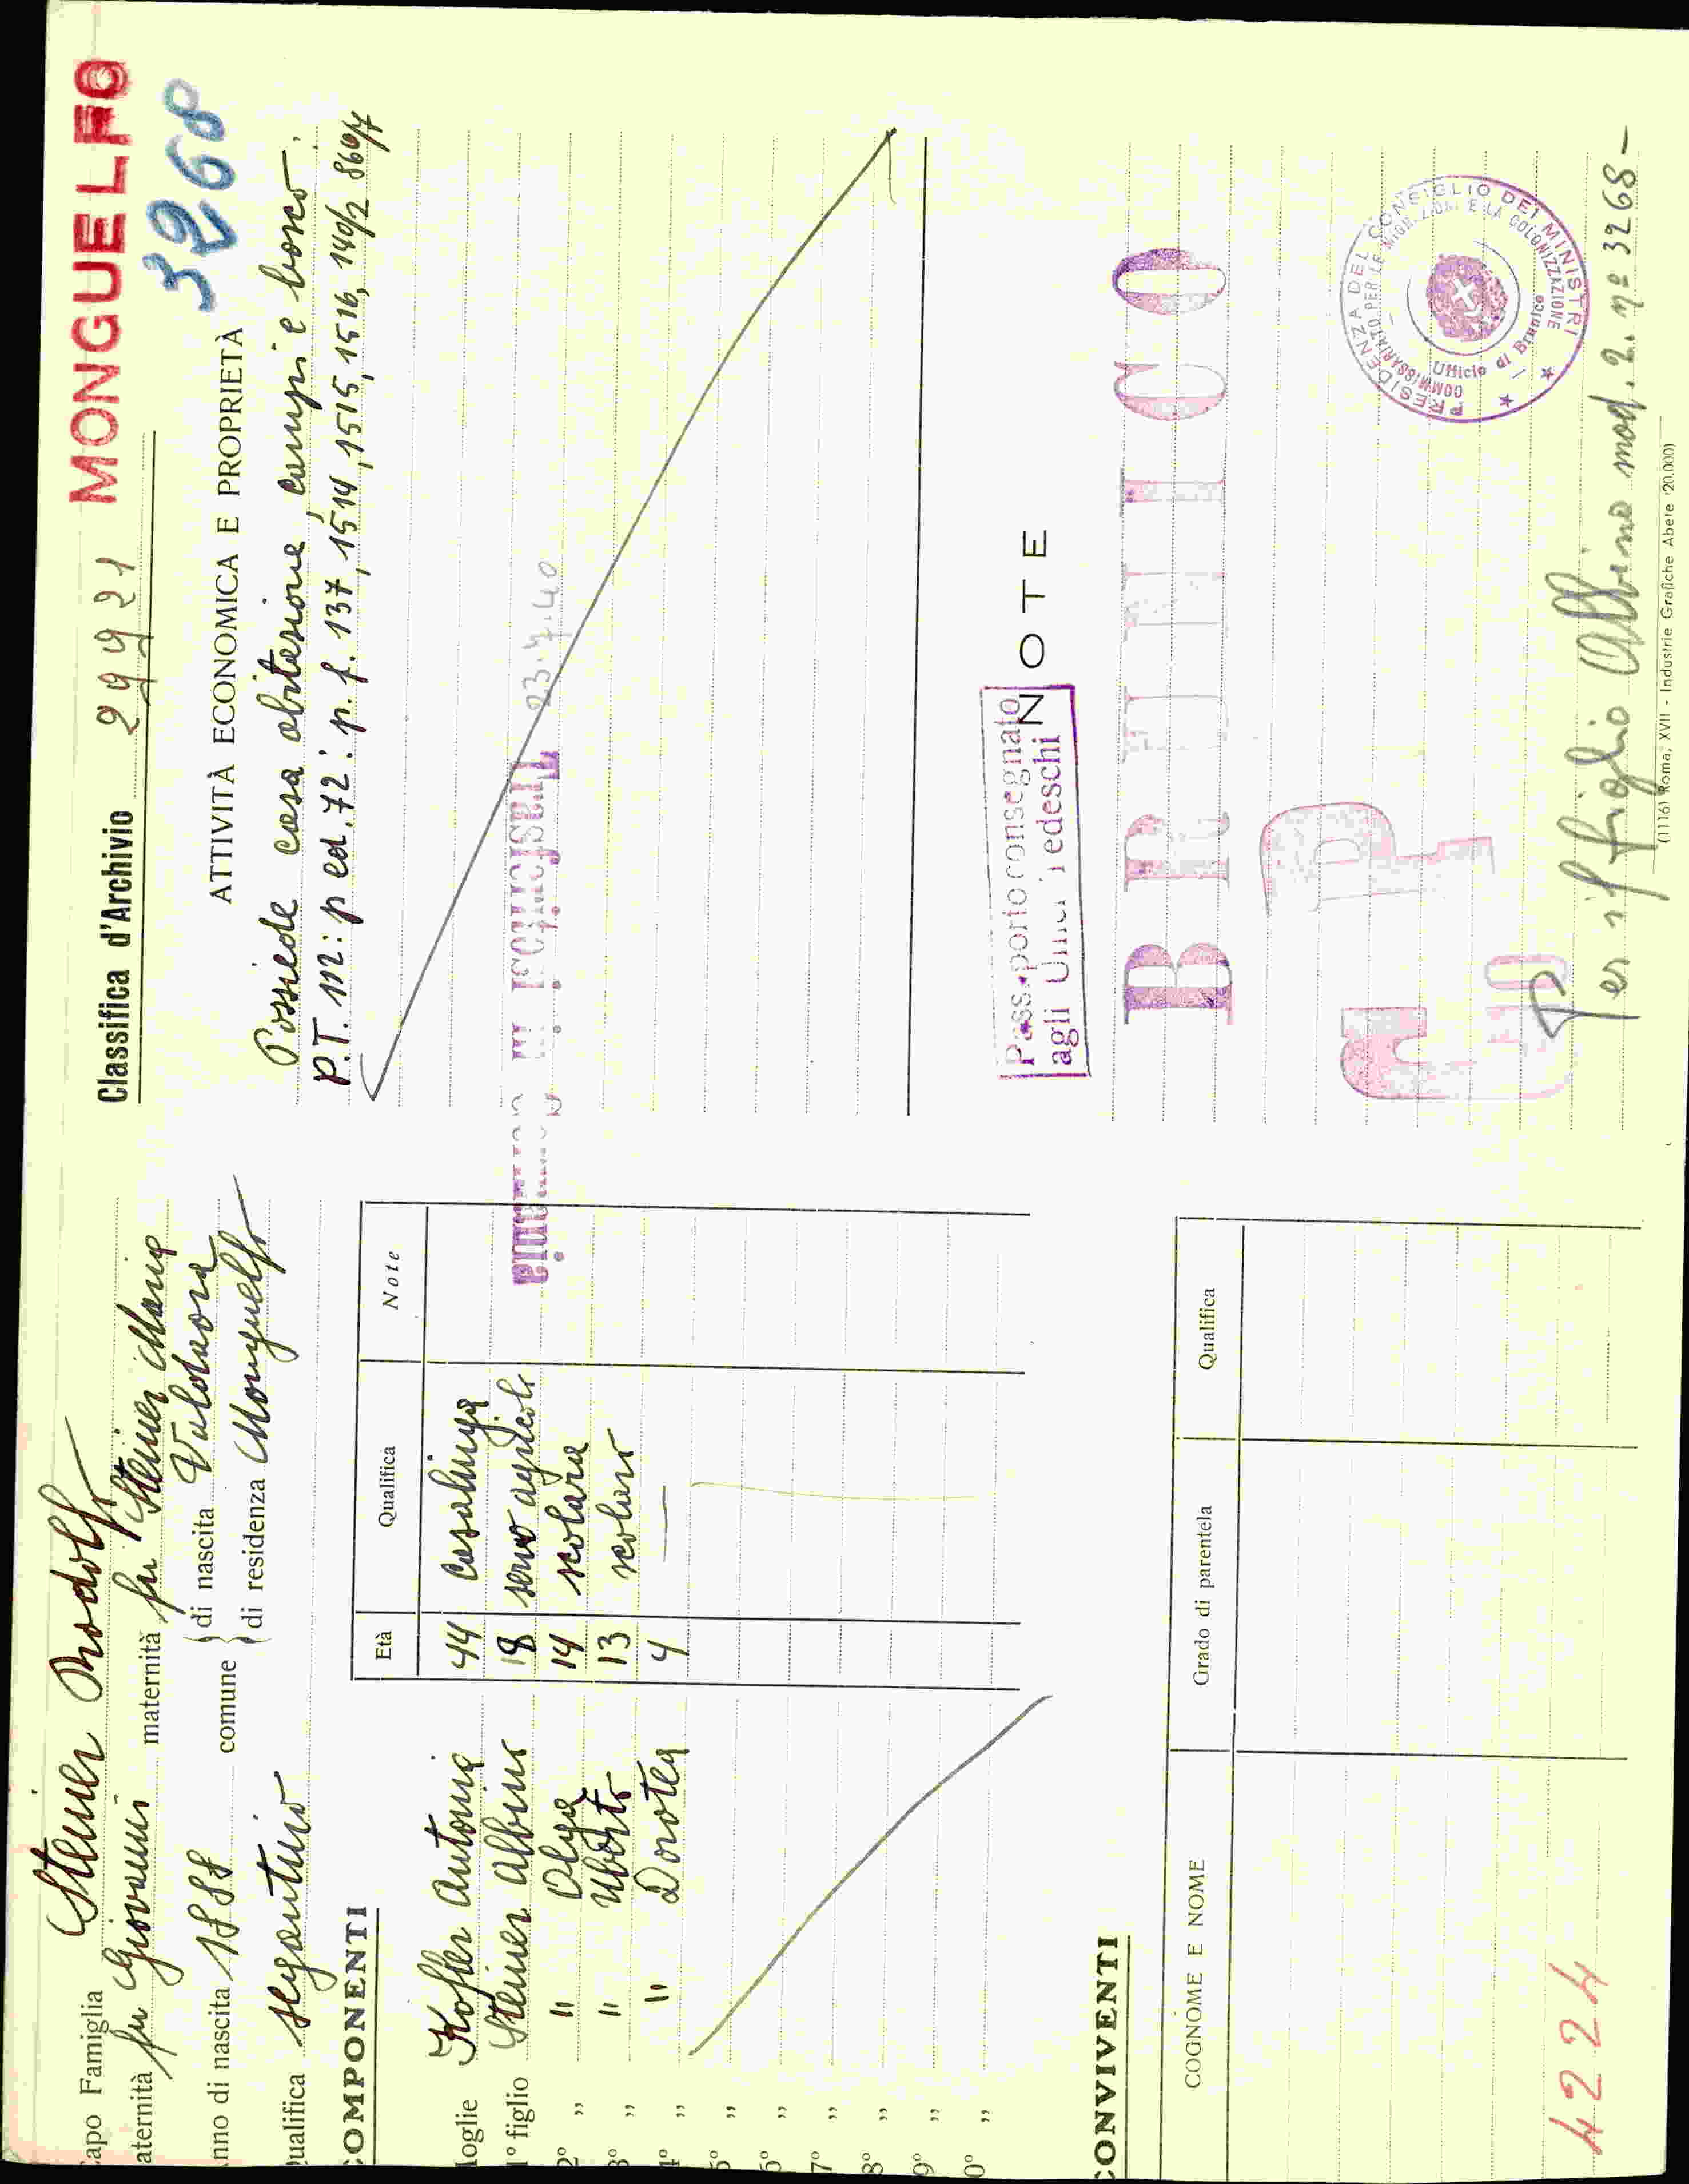 Capo Famiglia Steiner Rodolfo
aternità fu Giovanni maternità fu Steiner Maria
nno di nascita 1888 comune di nascita Valdaora
di residenza Monguelfo
ualifica segantino
COMPONENTI
Età Qualifica Note
oglie Kofler Antonia 44 casalinga
1º figlio Steiner Albino 18 servo agricolo
2º " " Olga 14 scolara
3º " " Uberto 13 scolaro
4º " " Dorotea 4 —
5º "
6º "
7º "
8º "
9º "
0º "
CONVIVENTI
COGNOME E NOME Grado di parentela Qualifica
4224
Classifica d'Archivio 29921 MONGUELFO
3268
ATTIVITÀ ECONOMICA E PROPRIETÀ
Possiede casa abitazione, campi e bosco.
P.T. m: p ed. 72: p. f. 137, 1514, 1515, 1516, 140/2 864/7
23.4.40
Passaporto consegnato
agli Uffici Tedeschi
NOTE
PRESIDENZA DEL CONSIGLIO DEI MINISTRI
COMMISSARIATO PER LE MIGRAZIONI E LA COLONIZZAZIONE
Ufficio di Brunico
Per il figlio Albino mod. 2. nº 3268 -
(1116) Roma, XVII - Industrie Grafiche Abete (20.000)